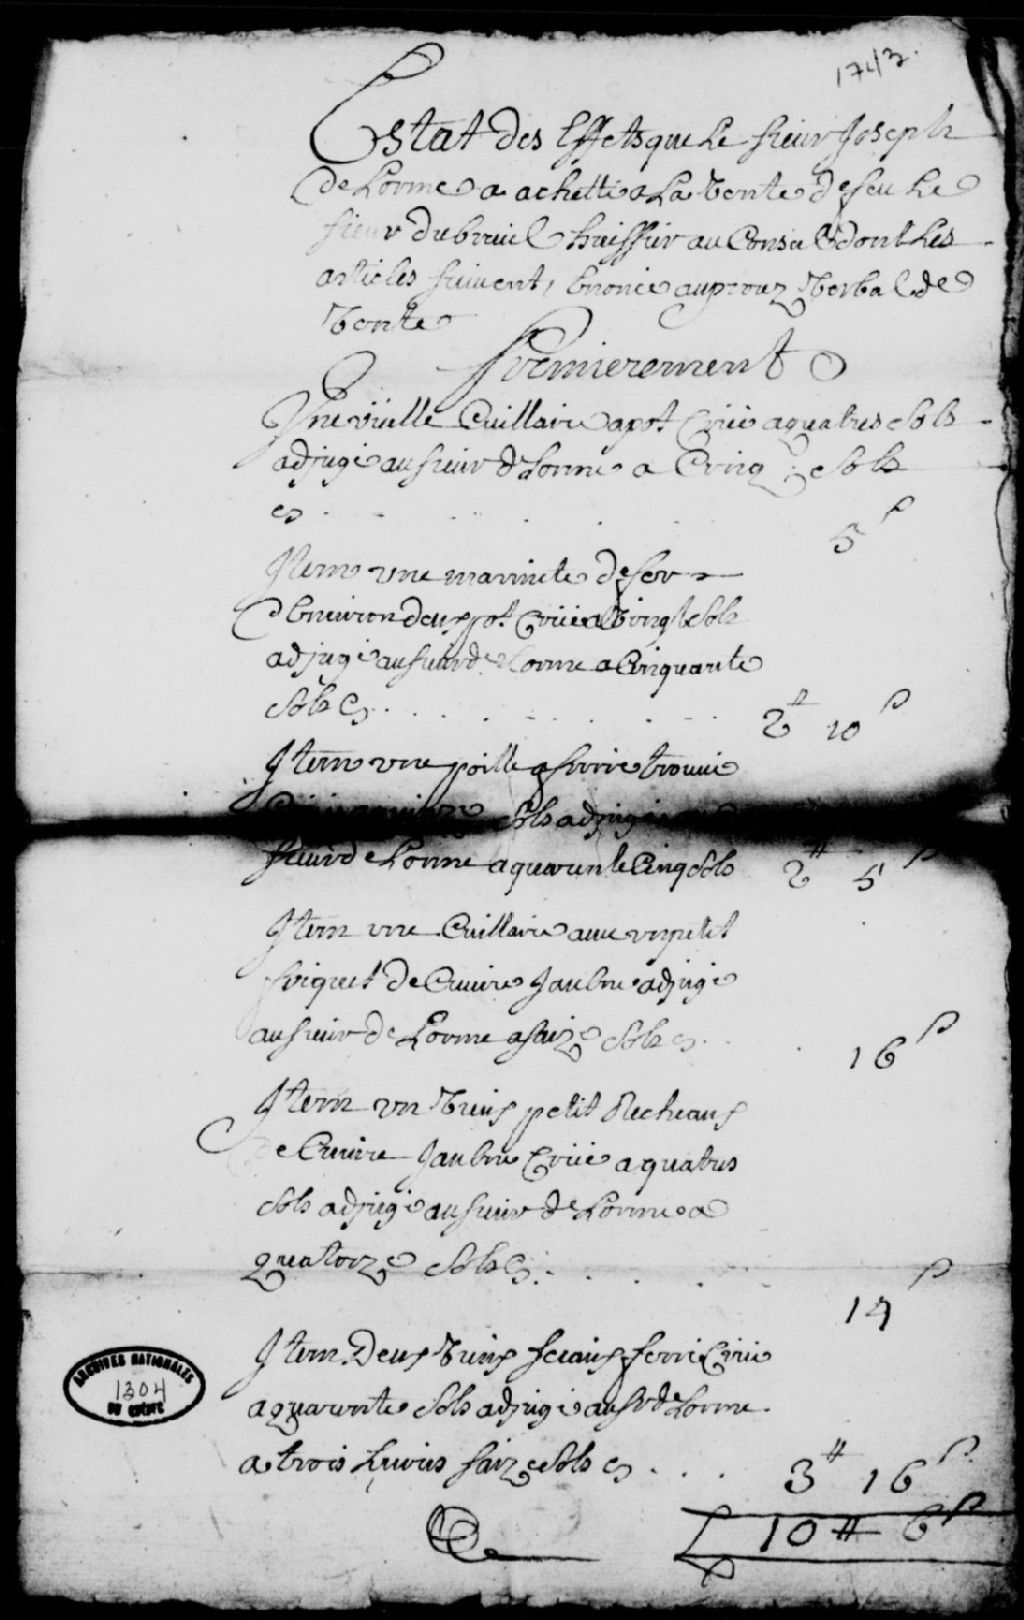 1743.
Estat des Effets que Le sieur Joseph
de Lorme a achetté a La Vente de feu Le
sieur dubreuil huissier au Conseil dont Les
articles suivent, Enoncé au procez Verbal de
Vente
Premierement
Une viielle Cuillaire a pot Criié a quatres Sols
adjugé au sieur de Lorme a Cinq Sols
Cy . . . . . 5 s
Item une marmite de fer
d'Environ deux pot Criié a Vingt Sols
adjugé au sieur de Lorme a Cinquante
Sols Cy . . . . . 2 ₶ 10 s
Item une poille a frire trouuée
Sols adjugé
sieur de Lorme a quarante Cinq Sols 2 ₶ 5 s
Item une Cuillaire avec un petit
friquet de Cuivre Jaulne adjugé
au sieur de Lorme a saize Sols Cy . . . 16 s
Item un Vieux petit Recheaux
de Cuivre Jaulne Criié a quatres
Sols adjugé au sieur de Lorme a
quatorze Sols Cy . . . . 14 s
Item Deux Vieux seaux ferré Criié
a quarante Sols adjugé au Sr de Lorme
a trois Livres saize Sols Cy . . . 3 ₶ 16 s
10 ₶ 6 s
ARCHIVES NATIONALES
1304
DU QUÉBEC